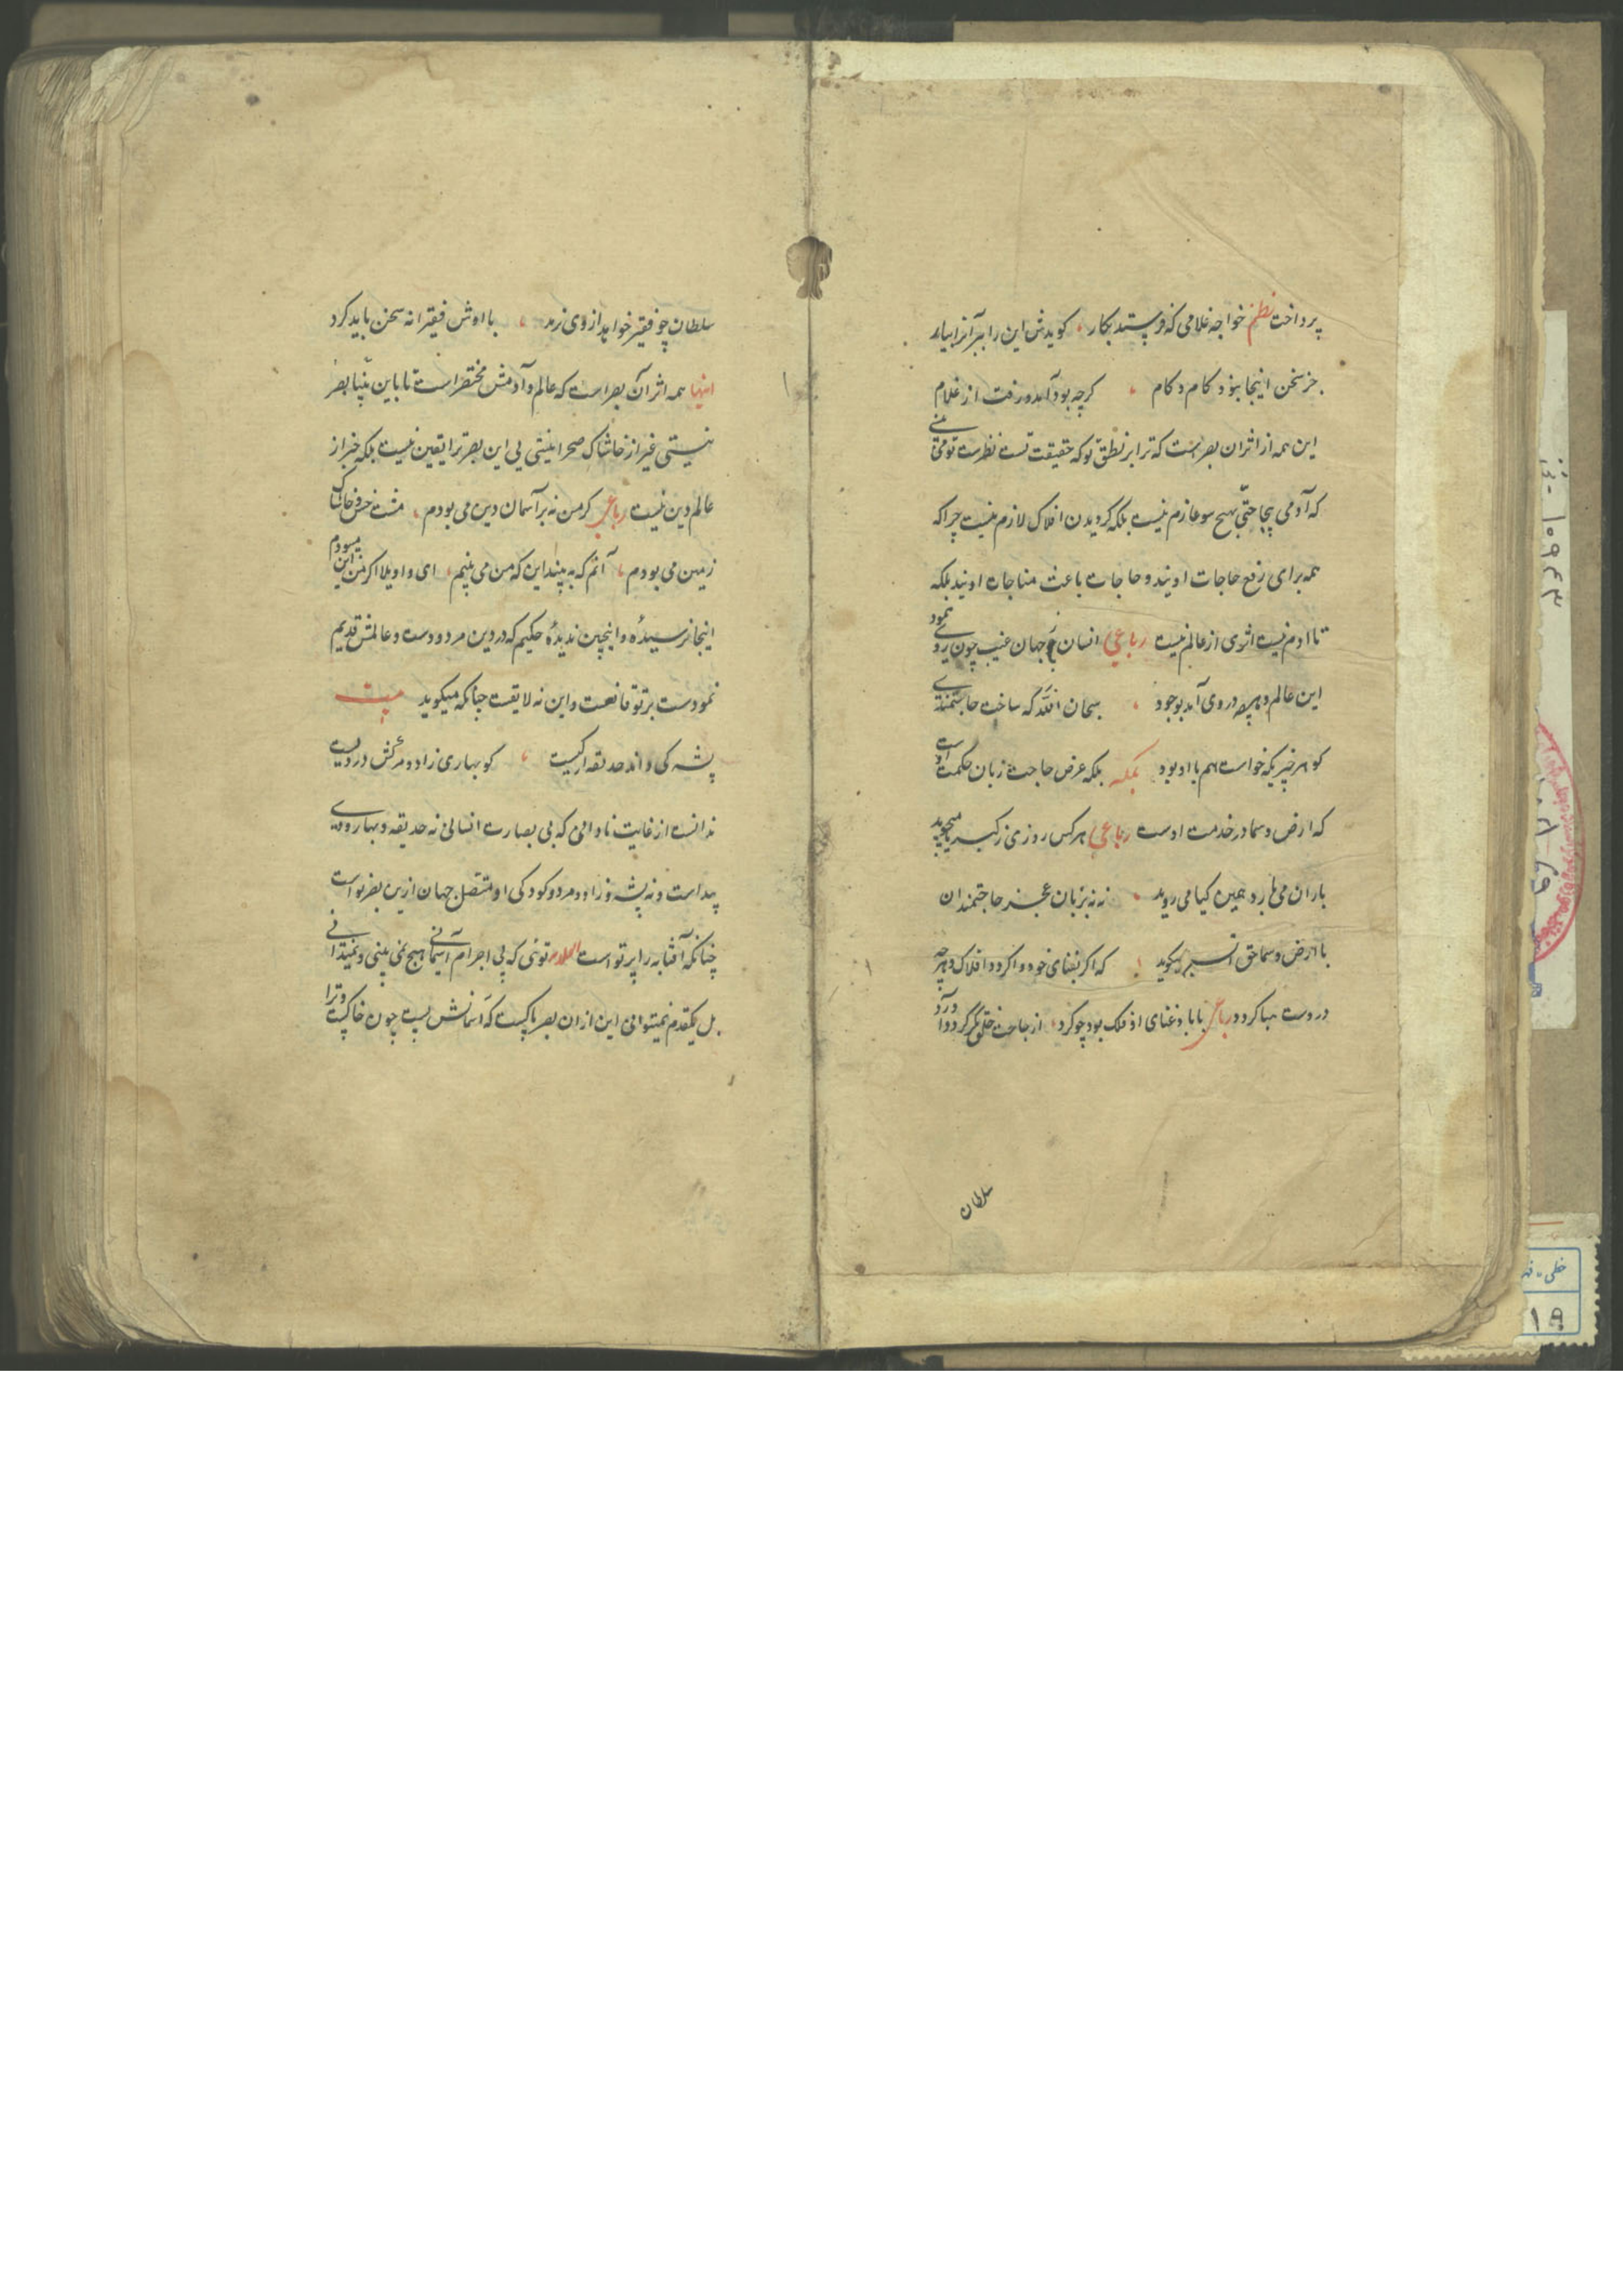 پرداخت نظم خواجه غلامی که فرستد بکار کویدش این را ببر آنرا بیار
جز سخن اینجا نبود کام و کام کرچه بود آمد و رفت از غلام
این همه از اثران بصر است که ترا بر نطق تو که حقیقت تست نظرست تو
که آدمی بیجاحتی بهیچ سو عازم نیست بلکه کردیدن افلاک لازم نیست چرا که
همه برای رفع حاجات اویند و حاجات باعث مناجات اویند بلکه
تا ادم نیست اثری از عالم نیست رباعی انسان جهان غیب چون روی نمود
این عالم و هرچه در وی آمد بوجود سبحان الله که ساخت حاجتمندی
کو هر چیزیکه خواست هم با او بود بلکه بلکه عرض حاجت زبان حکمت اوست
که ارض و سما در خدمت اوست رباعی هرکس روزی ز کبریا میجوید
باران می بارد و همین کیا می روید نه نه بزبان عجز حاجتمندان
با ارض و سما حق میکوید که اگر بغنای خود واکردد افلاک و هرچه
دروست هبا کردد رباعی بابا و غنای او فلک بود چو کرد از حاجت خلق کرد
سلطان
سلطان چو فقیر خواهد از وی نرمد با اوش فقیرانه سخن باید کرد
اینها همه اثر آن بصر است که عالم و آدمش مختصر است تا باین بینا بصر
نیستی غیر از خاشاک صحرا نیستی بی این بصر ترا یقین نیست بلکه خبر از
عالم دین نیست رباعی کر من نه بر آسمان دین می بودم مشت خس و خاشاک
زمین می بودم آنم که به بیند این که من می بینم ای واویلا اکر من این میبودم
اینجا نرسیدهٔ و اینچین ندیدهٔ حکیم که در دین مردودست و عالمش قدیم
نمودست بر تو فانعمت و این نه لایقت چنانکه میکوید بیت
پشه کی داند که حدیقه از کیست کو بهاری زاد و مرکش در دیست
ندانست از غایت نادانی که بی بصارت انسانی نه حدیقه و بهار و دی
پیداست و نه پشه و زاد و مرد و کودکی او متصل جهان ازین بصر نو است
چنانکه آفتاب را پرتو است توئی که بی اجرام آسمانی هیچ نمی بینی و نمیدانی
بل یکقدم نمیتوانی این ازان بصر پاکیست که آسمانش پست چون خاکیست و ترا
۱۰۹۴۳
خطی - فه
۱۹